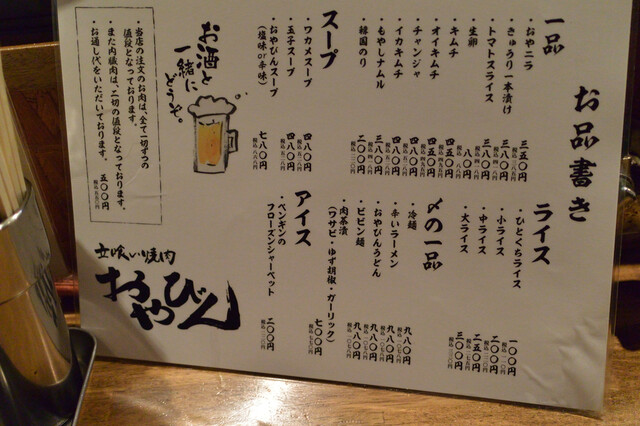 お品書き
一品
・おやニラ 三五〇円
・きゅうり一本漬け 三八〇円
・トマトスライス 三八〇円
・生卵 八〇円
・キムチ 四五〇円
・オイキムチ 四五〇円
・チャンジャ 四八〇円
・イカキムチ 四八〇円
・もやしナムル 四〇〇円
・韓国のり 二〇〇円
スープ
・ワカメスープ 四八〇円
・玉子スープ 四八〇円
・おやびんスープ 七八〇円
(塩味or辛味)
お酒と
一緒に
どうぞ。
・当店の注文のお肉は、全て一切ずつの
値段となっております。
・また内臓肉は、二切の値段となっております。
・お通し代をいただいております。
五〇〇円
ライス
・ひとくちライス 一〇〇円
・小ライス 二〇〇円
・中ライス 二五〇円
・大ライス 三〇〇円
〆の一品
・冷麺 九八〇円
・辛いラーメン 九八〇円
・おやびんうどん 九八〇円
・ビビン麺 九八〇円
・肉茶漬 七〇〇円
(ワサビ・ゆず胡椒・ガーリック)
アイス
・ペンギンの
フローズンシャーベット 二〇〇円
立喰い焼肉
おやびん